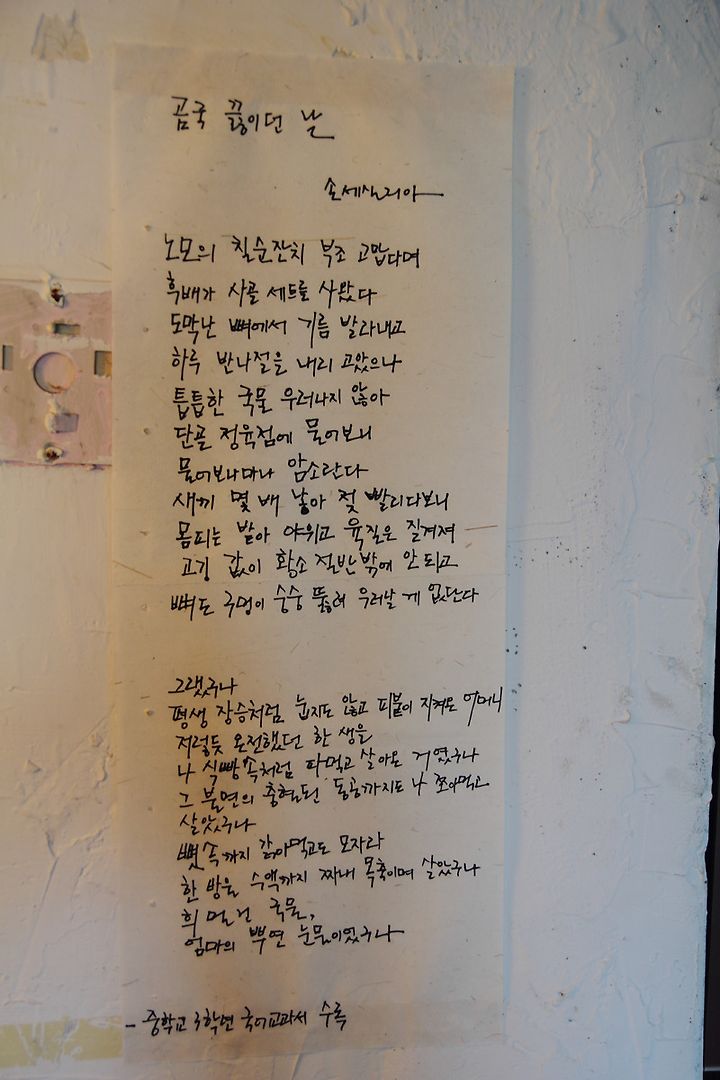 곰국 끓이던 날
손세실리아
노모의 칠순잔치 부조 고맙다며
후배가 사골 세트를 사왔다
도막난 뼈에서 기름 발라내고
하루 반나절을 내리 고았으나
틉틉한 국물 우러나지 않아
단골 정육점에 물어보니
물어보나마나 암소란다
새끼 몇 배 낳아 젖 빨리다보니
몸피는 밭아 야위고 육질은 질겨져
고기 값이 황소 절반밖에 안 되고
뼈도 구멍이 숭숭 뚫려 우러날 게 없단다
그랬구나
평생 장승처럼 눕지도 않고 피붙이 지켜온 어머니
저렇듯 온전했던 한 생을
나 식빵 속처럼 파먹고 살아온 거였구나
그 불면의 충혈된 동공까지도 나 쪼아먹고
살았구나
뼛속까지 갉아먹고도 모자라
한 방울 수액까지 짜내 목축이며 살았구나
희멀건 국물,
엄마의 뿌연 눈물이었구나
- 중학교 3학년 국어교과서 수록